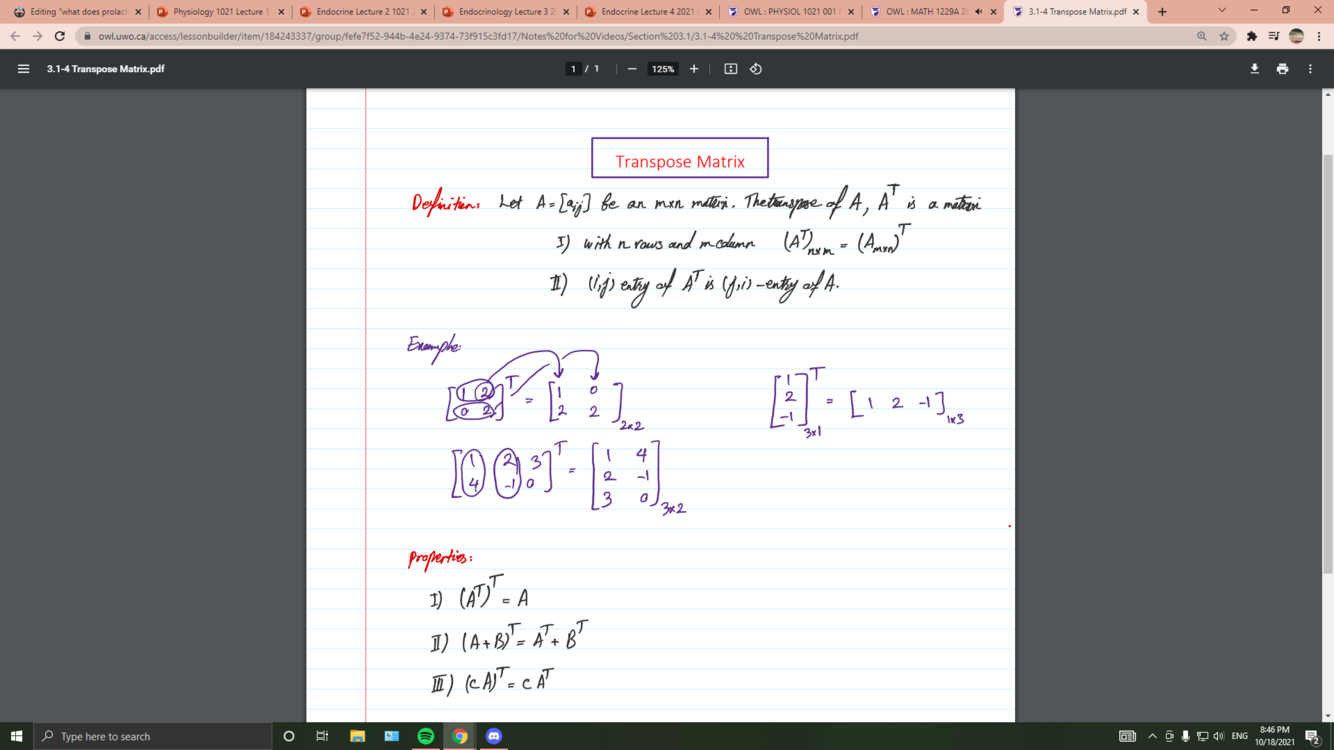 Editing "what does prolact
Physiology 1021 Lecture 1
Endocrine Lecture 2 1021
Endocrinology Lecture 3 2
Endocrine Lecture 4 2021
OWL : PHYSIOL 1021 001
OWL : MATH 1229A 20
3.1-4 Transpose Matrix.pdf
owl.uwo.ca/access/lessonbuilder/item/184243337/group/fefe7f52-944b-4e24-9374-73f915c3fd17/Notes%20for%20Videos/Section%203.1/3.1-4%20%20Transpose%20Matrix.pdf
3.1-4 Transpose Matrix.pdf
1 / 1
125%
Transpose Matrix
Definition: Let A = [aij] be an m×n matrix. The transpose of A, A^T is a matrix
I) with n rows and m column (A^T)n×m = (Am×n)^T
II) (i,j) entry of A^T is (j,i)-entry of A.
Example:
[1 2; 0 2]^T = [1 0; 2 2]2×2
[1; 2; -1]^T 3×1 = [1 2 -1]1×3
[1 2 3; 4 -1 0]^T = [1 4; 2 -1; 3 0]3×2
Properties:
I) (A^T)^T = A
II) (A+B)^T = A^T + B^T
III) (cA)^T = cA^T
Type here to search
ENG
8:46 PM
10/18/2021
2